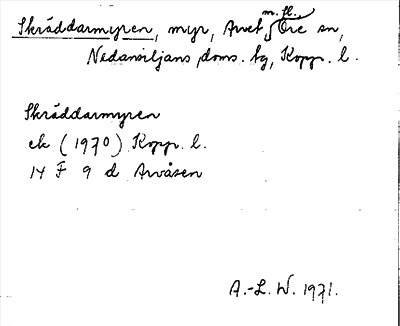 Skräddarmyren, myr, Arvet m. fl. Ore sn,
Nedansiljans doms. bg, Kopp. l.
Skräddarmyren
ek (1970) Kopp. l.
14 F 9 d Arvåsen
A.-L. W. 1971.